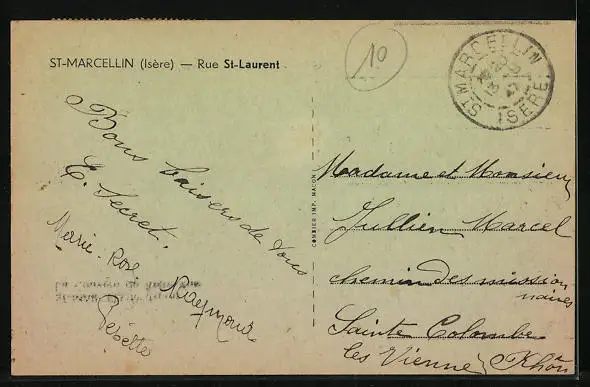 ST-MARCELLIN (Isère) — Rue St-Laurent
10
ST MARCELLIN
ISERE
Bons baisers de tous
Marie-Rose
Raymonde
Bebette
COMBIER IMP. MACON
Madame et Monsieur
Jullien Marcel
chemin des mission
naires
Sainte Colombe
les Vienne Rhône